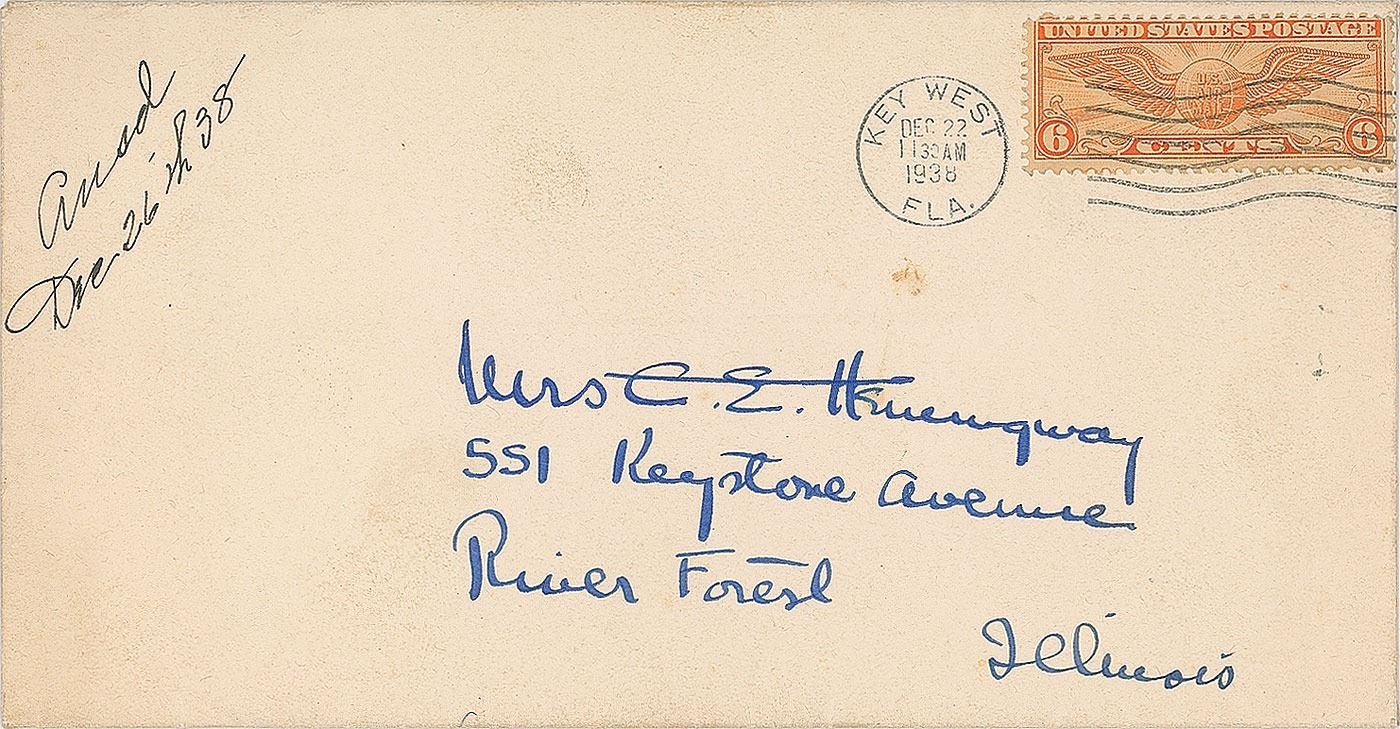 Ansd
Dec 26th 38
KEY WEST
DEC 22
11 30 AM
1938
FLA.
UNITED STATES POSTAGE
U.S.
AIR
MAIL
6 CENTS 6
Mrs C. E. Hemingway
551 Keystone Avenue
River Forest
Illinois